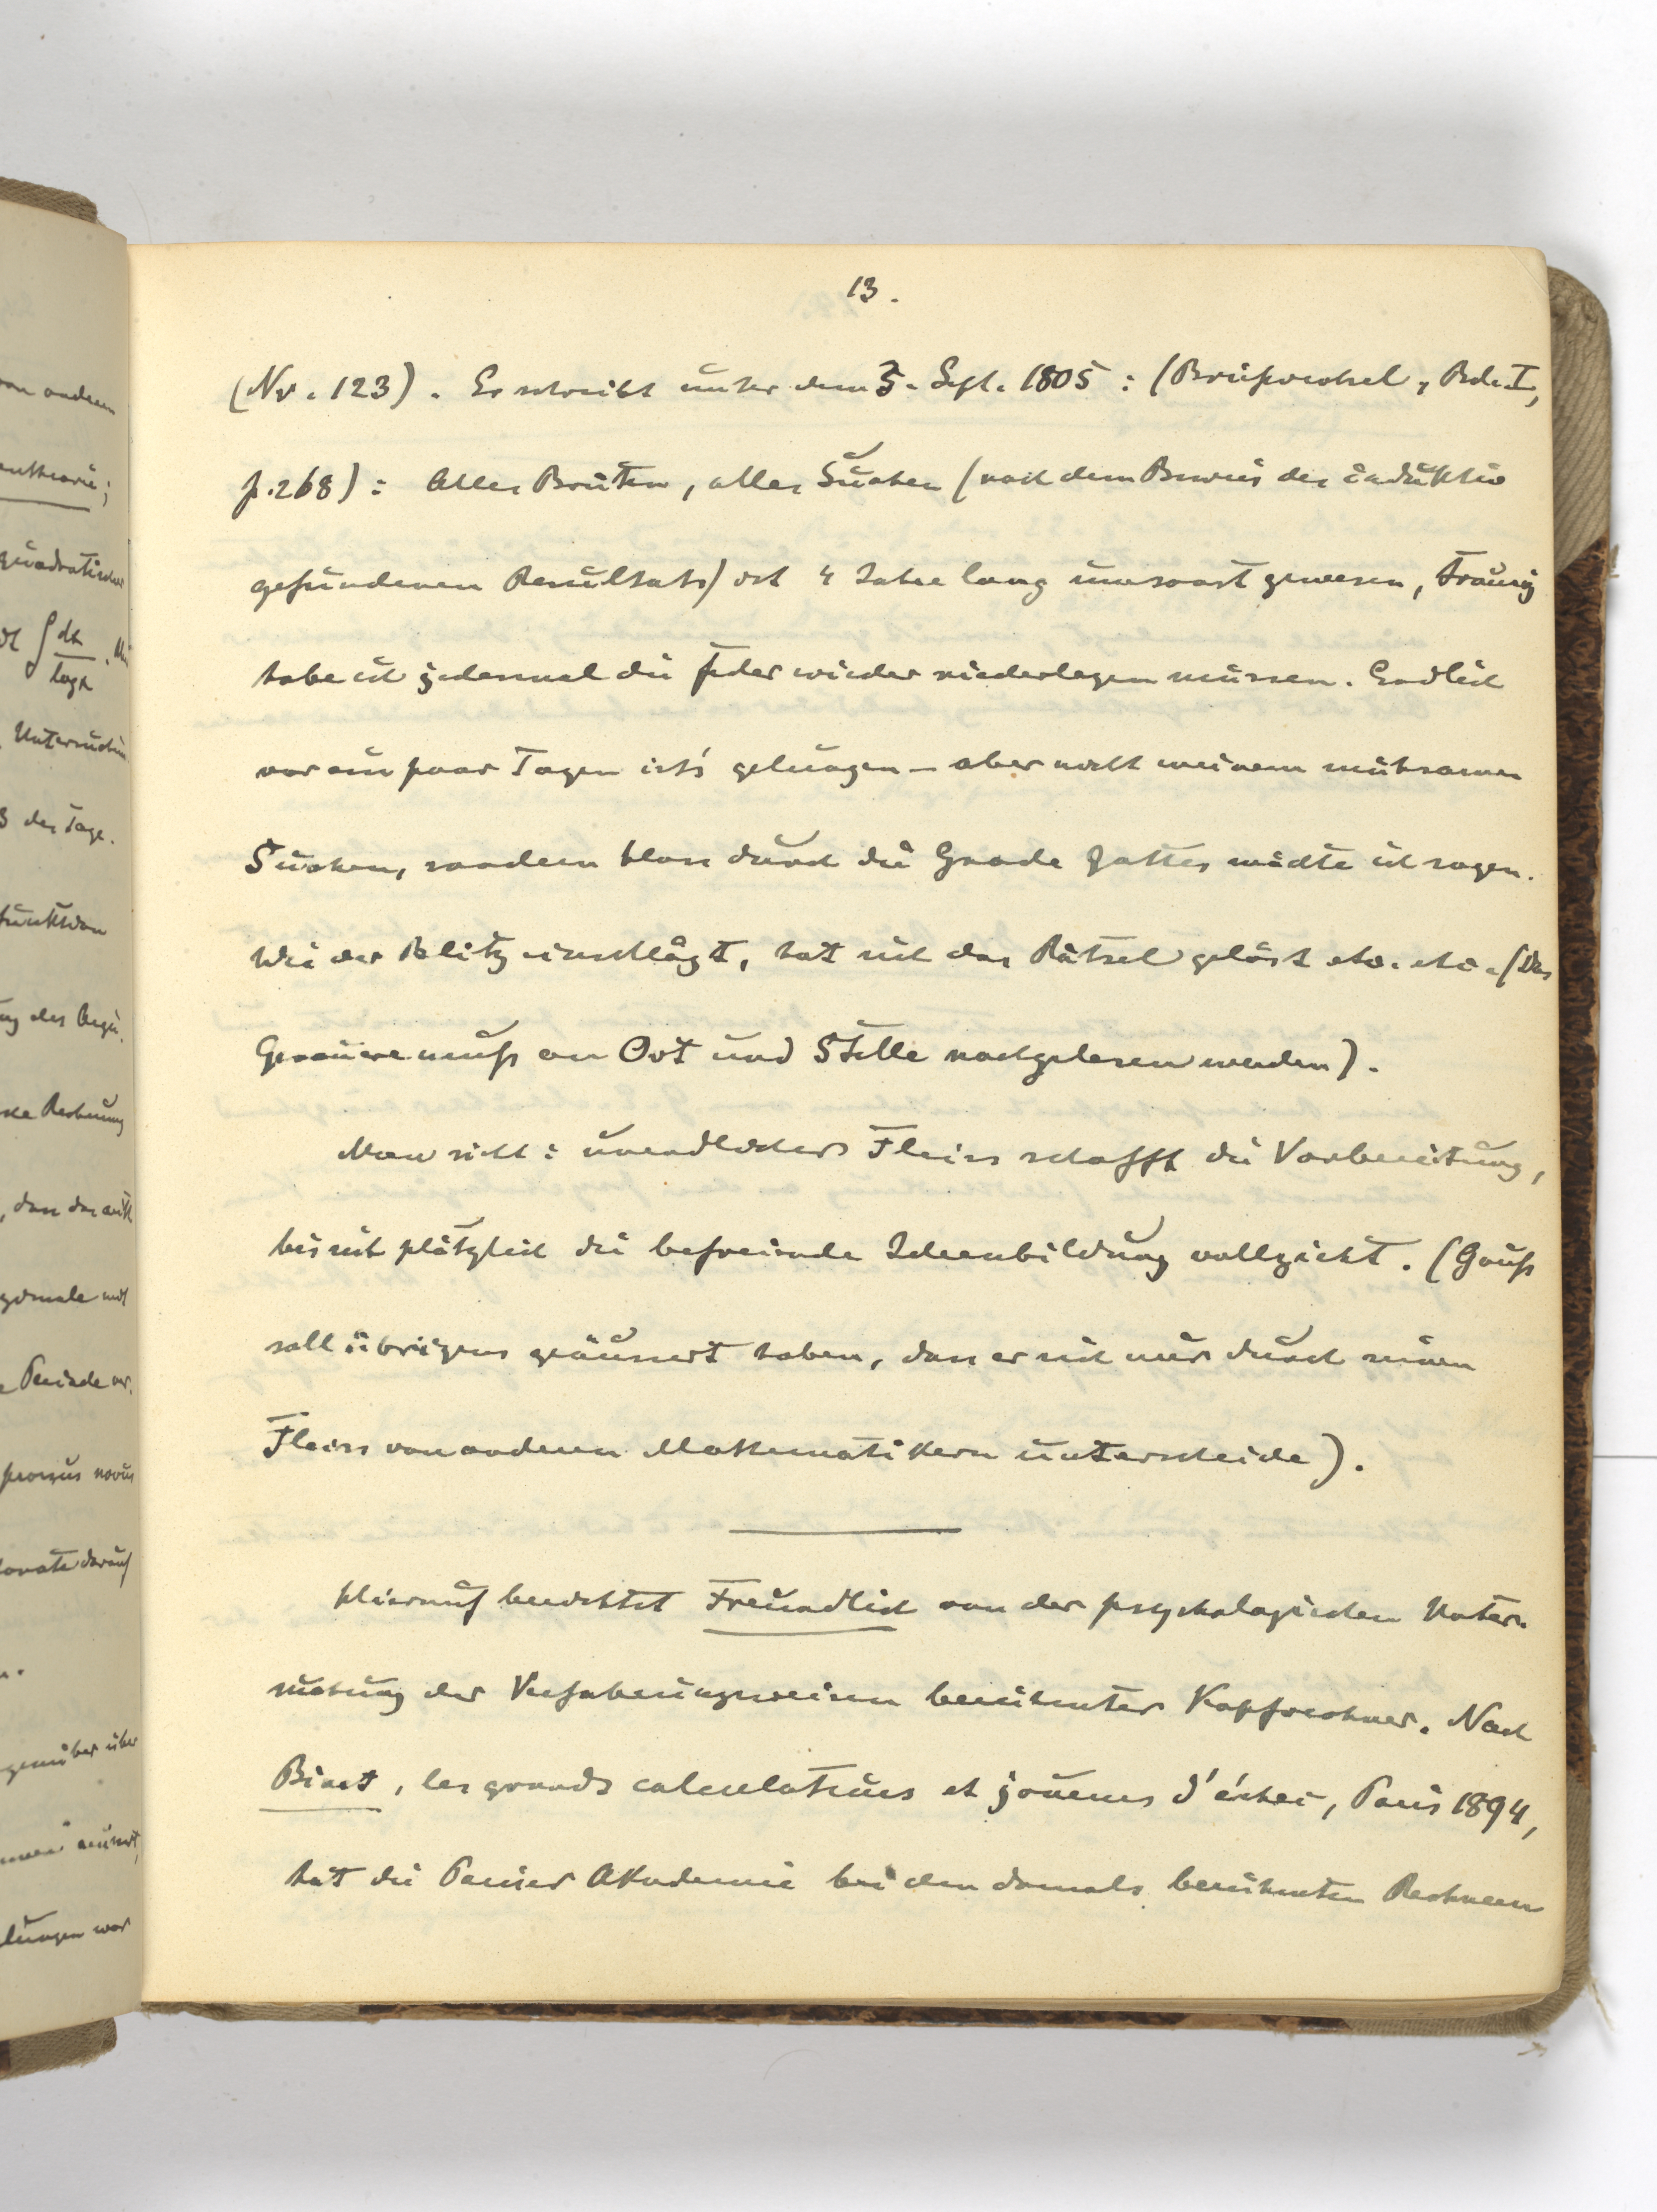 13.
(Nr. 123). Er schreibt unter dem 3. Sept. 1805: (Briefwechsel, Bd. I,
p. 268): Alles Brüten, alles Suchen (nach dem Beweis des induktiv
gefundenen Resultats) ist 4 Jahre lang umsonst gewesen, traurig
habe ich jedesmal die Feder wieder niederlegen müssen. Endlich
vor ein paar Tagen ist's gelungen – aber nicht meinem mühsamen
Suchen, sondern bloss durch die Gnade Gottes möchte ich sagen.
Wie der Blitz einschlägt, hat sich das Rätsel gelöst etc. etc. (Das
Genauere muß an Ort und Stelle nachgelesen werden).
Man sieht: unendlicher Fleiss schafft die Vorbereitung,
bis sich plötzlich die befreiende Ideenbildung vollzieht. (Gauß
soll übrigens geäussert haben, dass er sich nur durch seinen
Fleiss von anderen Mathematikern unterscheide).
Hierauf berichtet Freundlich von der psychologischen Unter-
suchung der Verfahrungsweisen berühmter Kopfrechner. Nach
Binet, les grands calculateurs et joueurs d'échec, Paris 1894,
hat die Pariser Akademie bei den damals berühmten Rechnern
von anderen
quadratischen
∫ dx / log x
Untersuchun
3 der Tage.
funktion
Rechnung
Periode
novus
darauf
über
lungen war